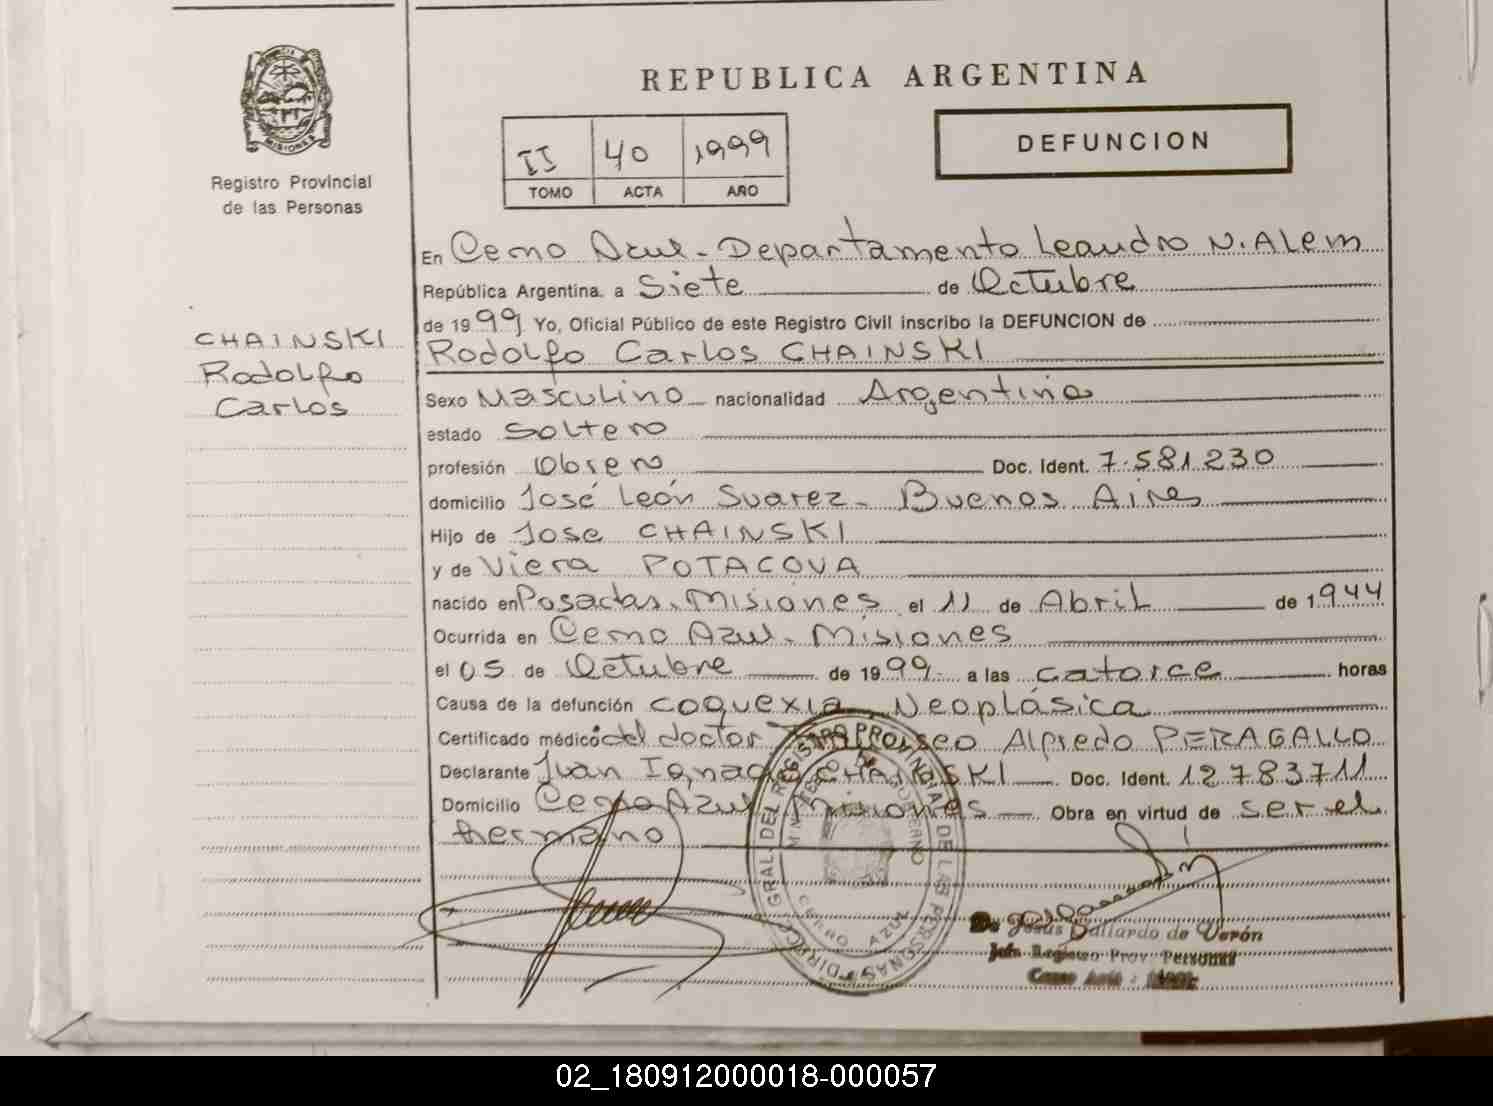 REPUBLICA ARGENTINA
MISIONES
Registro Provincial
de las Personas
II 40 1999
TOMO ACTA AÑO
DEFUNCION
CHAINSKI
Rodolfo
Carlos
En Cerro Azul - Departamento Leandro N. ALem
República Argentina. a Siete de Octubre
de 1999 Yo, Oficial Público de este Registro Civil inscribo la DEFUNCION de
Rodolfo Carlos CHAINSKI
Sexo Masculino nacionalidad Argentina
estado Soltero
profesión Obrero Doc. Ident. 7.581.230
domicilio José León Suarez - Buenos Aires
Hijo de Jose CHAINSKI
y de Viera POTACOVA
nacido en Posadas, Misiones el 11 de Abril de 1944
Ocurrida en Cerro Azul - Misiones
el 05 de Octubre de 1999 a las catorce horas
Causa de la defunción coquexia Neoplásica
Certificado médico del doctor Alfredo PERAGALLO
Declarante Juan Ignacio CHAINSKI Doc. Ident. 12783711
Domicilio Cerro Azul Misiones Obra en virtud de ser el
hermano
DIREC. GRAL. DEL REGISTRO PROVINCIAL DE LAS PERSONAS
CERRO AZUL
De Jesús Gallardo de Verón
Jefa Registro Prov. Personas
02_180912000018-000057